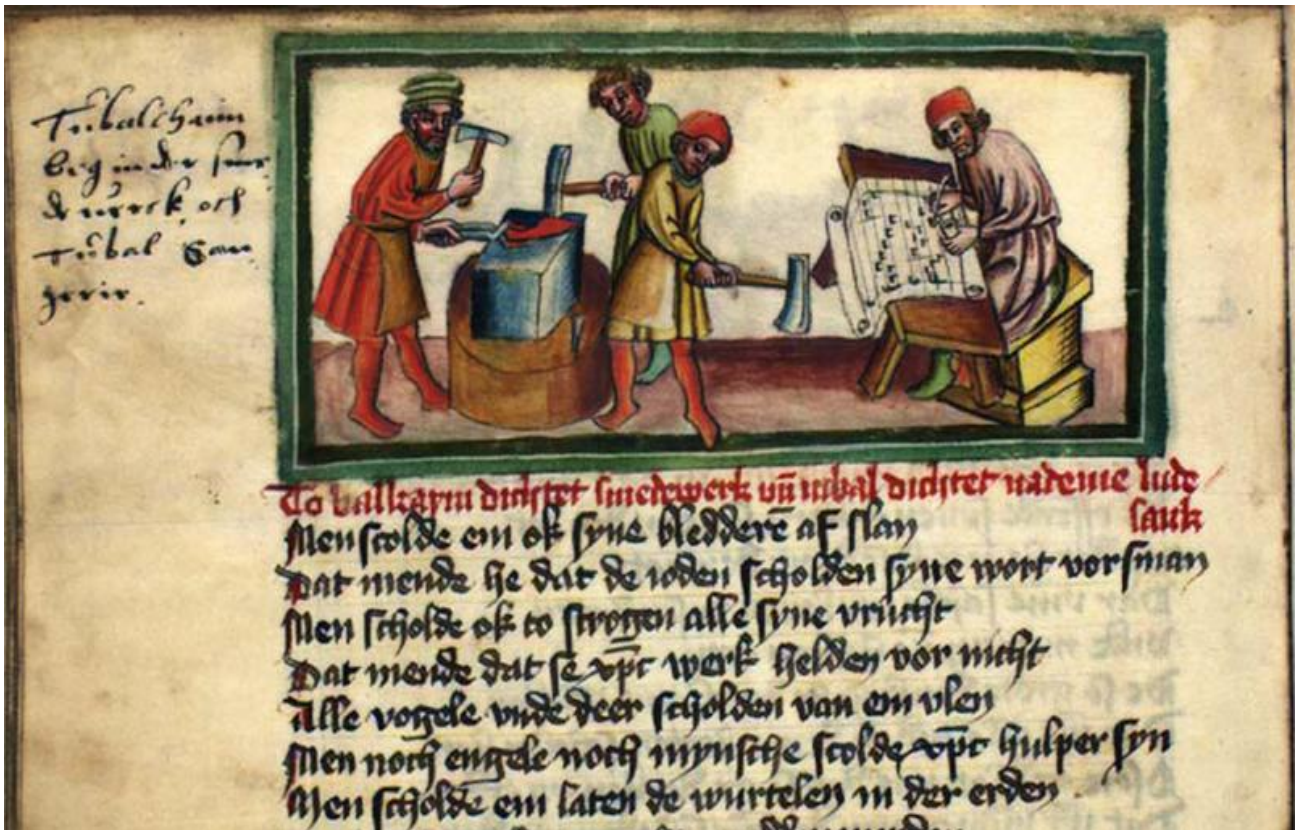 Tubalchaim
beginder
de werck och
Tubal San
gerie.
To balkaym dichtet smedewerk vn̄ iubal dichtet na deme lude
sank
Men scolde em ok syne bledderē af slan
Dat mende he dat de ioden scholden syne wort vorsman
Men scholde ok to strogen alle syne vrucht
Dat mende dat se xp̄c werk helden vor nicht
Alle vogele vnde deer scholden van em vlen
Men noch engele noch mynsche scolde xp̄c hulper syn
Men scholde em laten de wurtelen in der erden